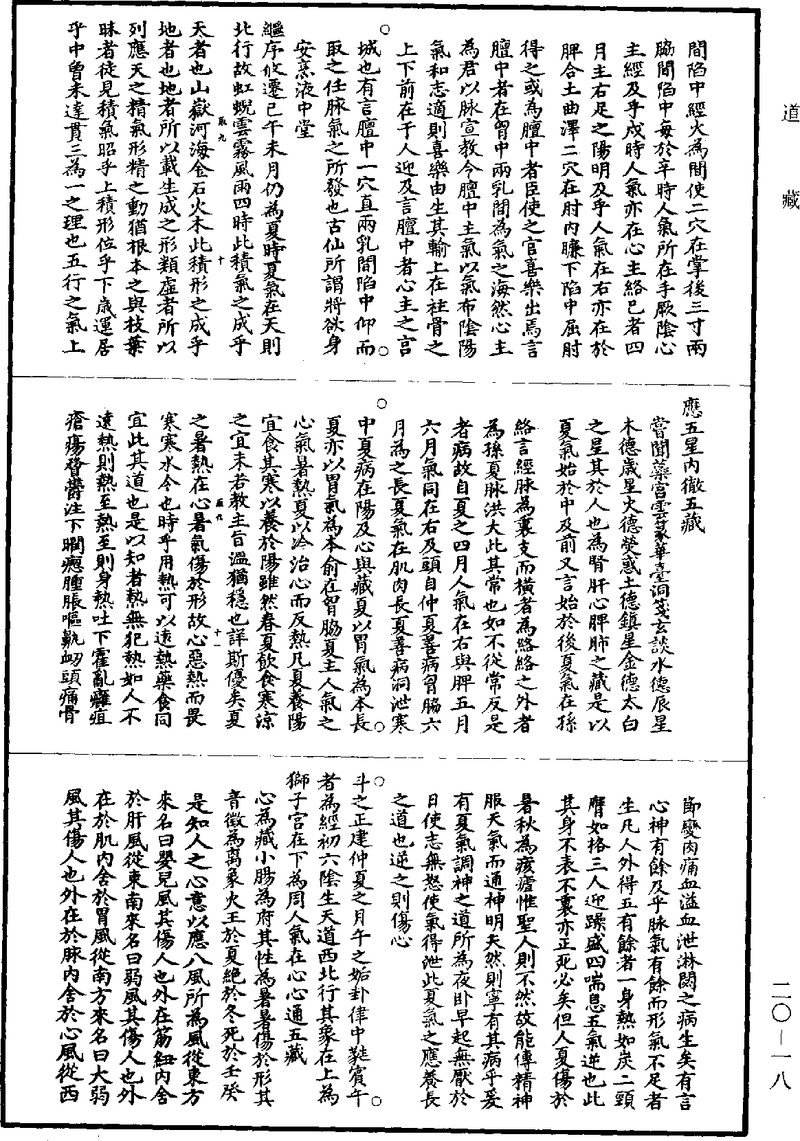 道藏
間陷中經火為間使二穴在掌後三寸兩
脇間陷中每於辛時人氣所在手厥陰心
主經及乎戌時人氣亦在心主絡巳者四
月主右足之陽明及乎人氣在右亦在於
脾合土曲澤二穴在肘內臁下陷中屈肘
得之或為膻中者臣使之官喜樂出焉言
膻中者在胷中兩乳間為氣之海然心主
為君以脉宣教令膻中主氣以氣布陰陽
氣和志適則喜樂由生其輸上在柱骨之
上下前在于人迎及言膻中者心主之宫
城也有言膻中一穴直兩乳間陷中仰而
取之任脉氣之所發也古仙所謂將欲身
安烹液中堂
繼序攸遷巳午未月仍為夏時夏氣在天則
北行故虹蜺雲霧風雨四時此積氣之成乎
天者也山嶽河海金石火木此積形之成乎
地者也地者所以載生成之形類虛者所以
列應天之精氣形精之動猶根本之與枝葉
昧者徒見積氣昭乎上積形位乎下歲運居
乎中曾未達貫三為一之理也五行之氣上
應五星內徹五藏
甞聞藥宫雲篆華臺洞笈玄談水德辰星
木德歲星火德熒惑土德鎮星金德太白
之星其於人也為腎肝心脾肺之藏是以
夏氣始於中及前又言始於後夏氣在孫
絡言經脉為裏支而橫者為絡絡之外者
為孫夏脉洪大此其常也如不從常反是
者病故自夏之四月人氣在右與脾五月
六月氣同在右及頭自仲夏善病胷脇六
月為之長夏氣在肌肉長夏善病洞泄寒
中夏病在陽及心與藏夏以胃氣為本長
夏亦以胃氣為本俞在胷脇夏主人氣之
心氣暑熱夏以冷治心而反熱凡夏養陽
宜食其寒以養於陽雖然春夏飲食寒涼
之宜未若教主旨溫猶穩也詳斯優矣夏
之暑熱在心暑氣傷於形故心惡熱而畏
寒寒水令也時乎用熱可以遠熱藥食同
宜此其道也是以知者熱無犯熱如人不
遠熱則熱至熱至則身熱吐下霍亂癰疽
瘡瘍瞀鬱注下瞤瘛腫脹嘔鼽衂頭痛骨
節變肉痛血溢血泄淋閟之病生矣有言
心神有餘及乎脉氣有餘而形氣不足者
生凡人外得五有餘者一身熱如炭二頸
膺如格三人迎躁盛四喘息五氣逆也此
其身不表不裏亦正死必矣但人夏傷於
暑秋為痎瘧惟聖人則不然故能傳精神
服天氣而通神明夫然則寧有其病乎爰
有夏氣調神之道所為夜卧早起無厭於
日使志無怒使氣得泄此夏氣之應養長
之道也逆之則傷心
斗之正建仲夏之月午之姤卦律中蕤賓午
者為經初六陰生天道西北行其象在上為
獅子宫在下為周人氣在心心通五藏
心為藏小腸為府其性為暑暑傷於形其
音徵為萬象火王於夏絕於冬死於壬癸
是知人之心意以應八風所為風從東方
來名曰嬰兒風其傷人也外在筋紐內舍
於肝風從東南來名曰弱風其傷人也外
在於肌內舍於胃風從南方來名曰大弱
風其傷人也外在於脉內舍於心風從西
二〇—一八